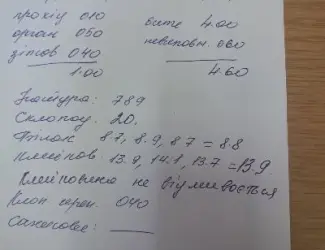 прохід 010 бите 4.00
орган 050 неваповн. 060
дітов 040
1.00 4.60
Натура: 789
Склопод. 20.
Фтлак 8.7, 8.9, 8.7 = 8.8
клейков 13.9, 14.1, 13.7 = 13.9
Клейковина не відмивається
Клоп череп. 040
Сажкове: